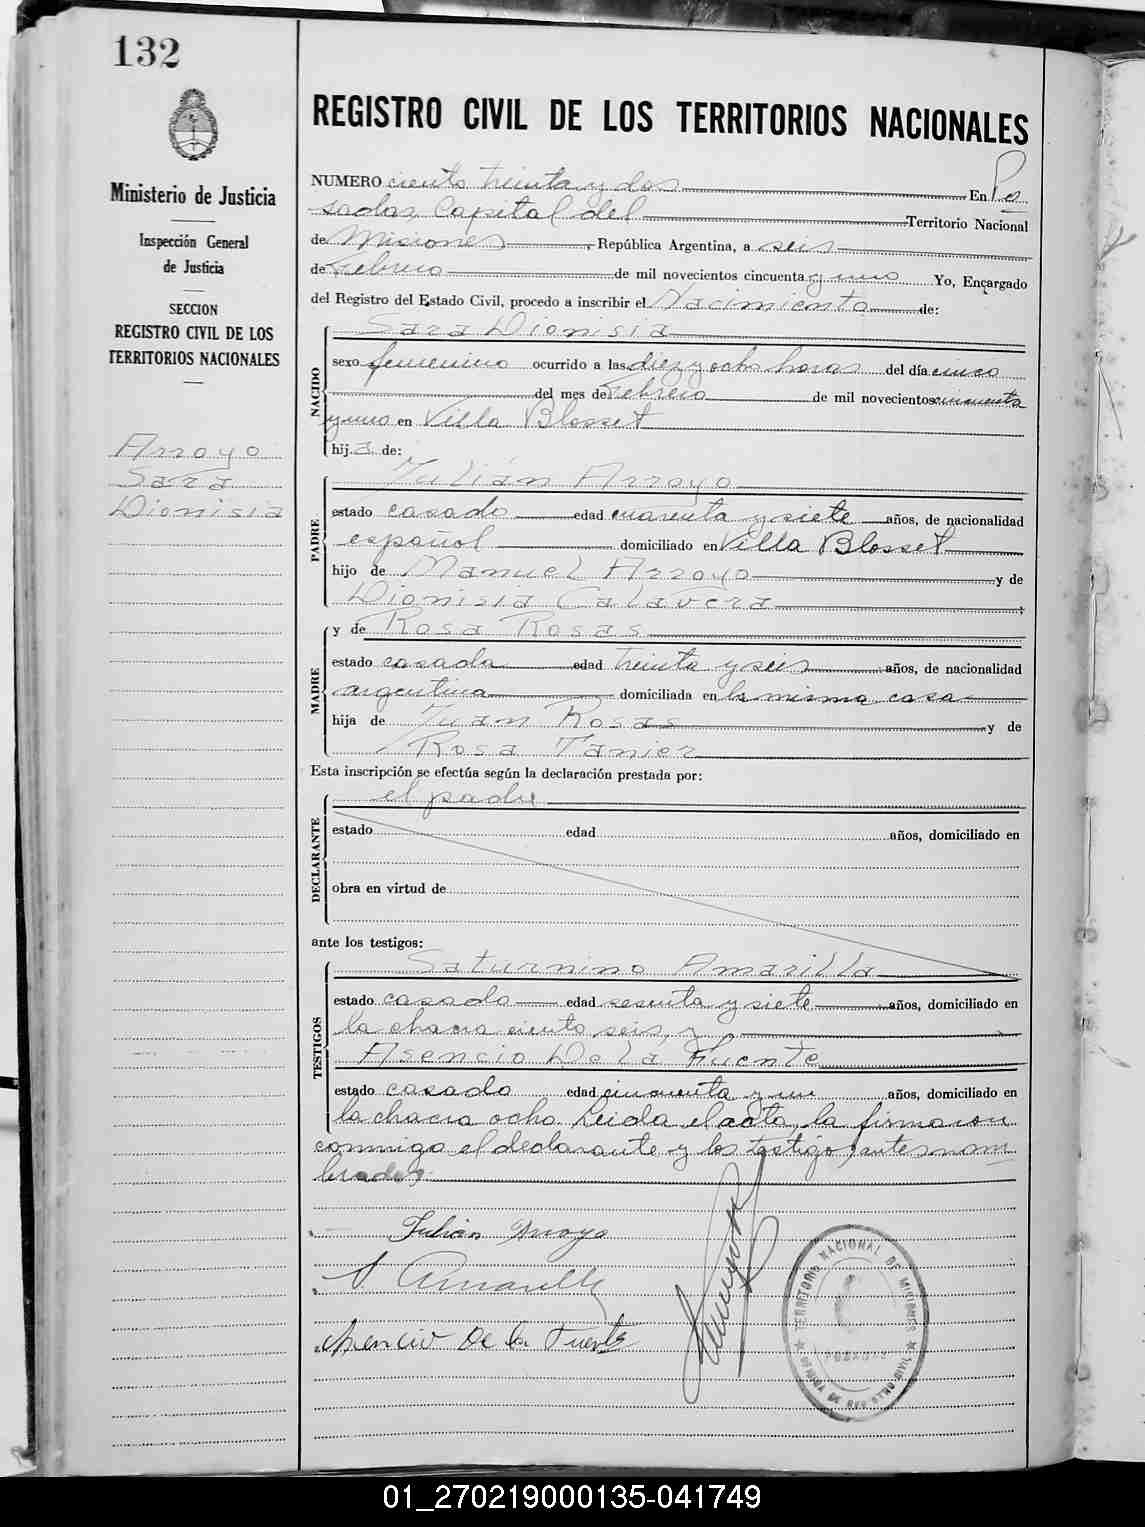 132
Ministerio de Justicia
Inspección General
de Justicia
SECCION
REGISTRO CIVIL DE LOS
TERRITORIOS NACIONALES
Arroyo
Sara
Dionisia
REGISTRO CIVIL DE LOS TERRITORIOS NACIONALES
NUMERO ciento treinta y dos En Po
sadas Capital del Territorio Nacional
de Misiones, República Argentina, a seis
de Febrero de mil novecientos cincuenta y uno Yo, Encargado
del Registro del Estado Civil, procedo a inscribir el Nacimiento de:
NACIDO
Sara Dionisia
sexo femenino ocurrido a las diez y ocho horas del día cinco
del mes de Febrero de mil novecientos cincuenta
y uno en Villa Blosset
hija de:
PADRE
Julián Arroyo
estado casado edad cuarenta y siete años, de nacionalidad
español domiciliado en Villa Blosset
hijo de Manuel Arroyo y de
Dionisia Calavera
MADRE
y de Rosa Rosas
estado casada edad treinta y seis años, de nacionalidad
argentina domiciliada en la misma casa
hija de Juan Rosas y de
Rosa Tanier
Esta inscripción se efectúa según la declaración prestada por:
DECLARANTE
el padre
estado edad años, domiciliado en
obra en virtud de
ante los testigos:
TESTIGOS
Saturnino Amarilla
estado casado edad sesenta y siete años, domiciliado en
la chacra ciento seis y
Asencio De La Fuente
estado casado edad cincuenta y un años, domiciliado en
la chacra ocho. Leida el acta, la firmaron
conmigo el declarante y los testigos antes nom
brados
Julian Arroyo
S Amarilla
Asencio De la Fuente
TERRITORIO NACIONAL DE MISIONES
POSADAS
OFICINA DE REGISTRO CIVIL
01_270219000135-041749